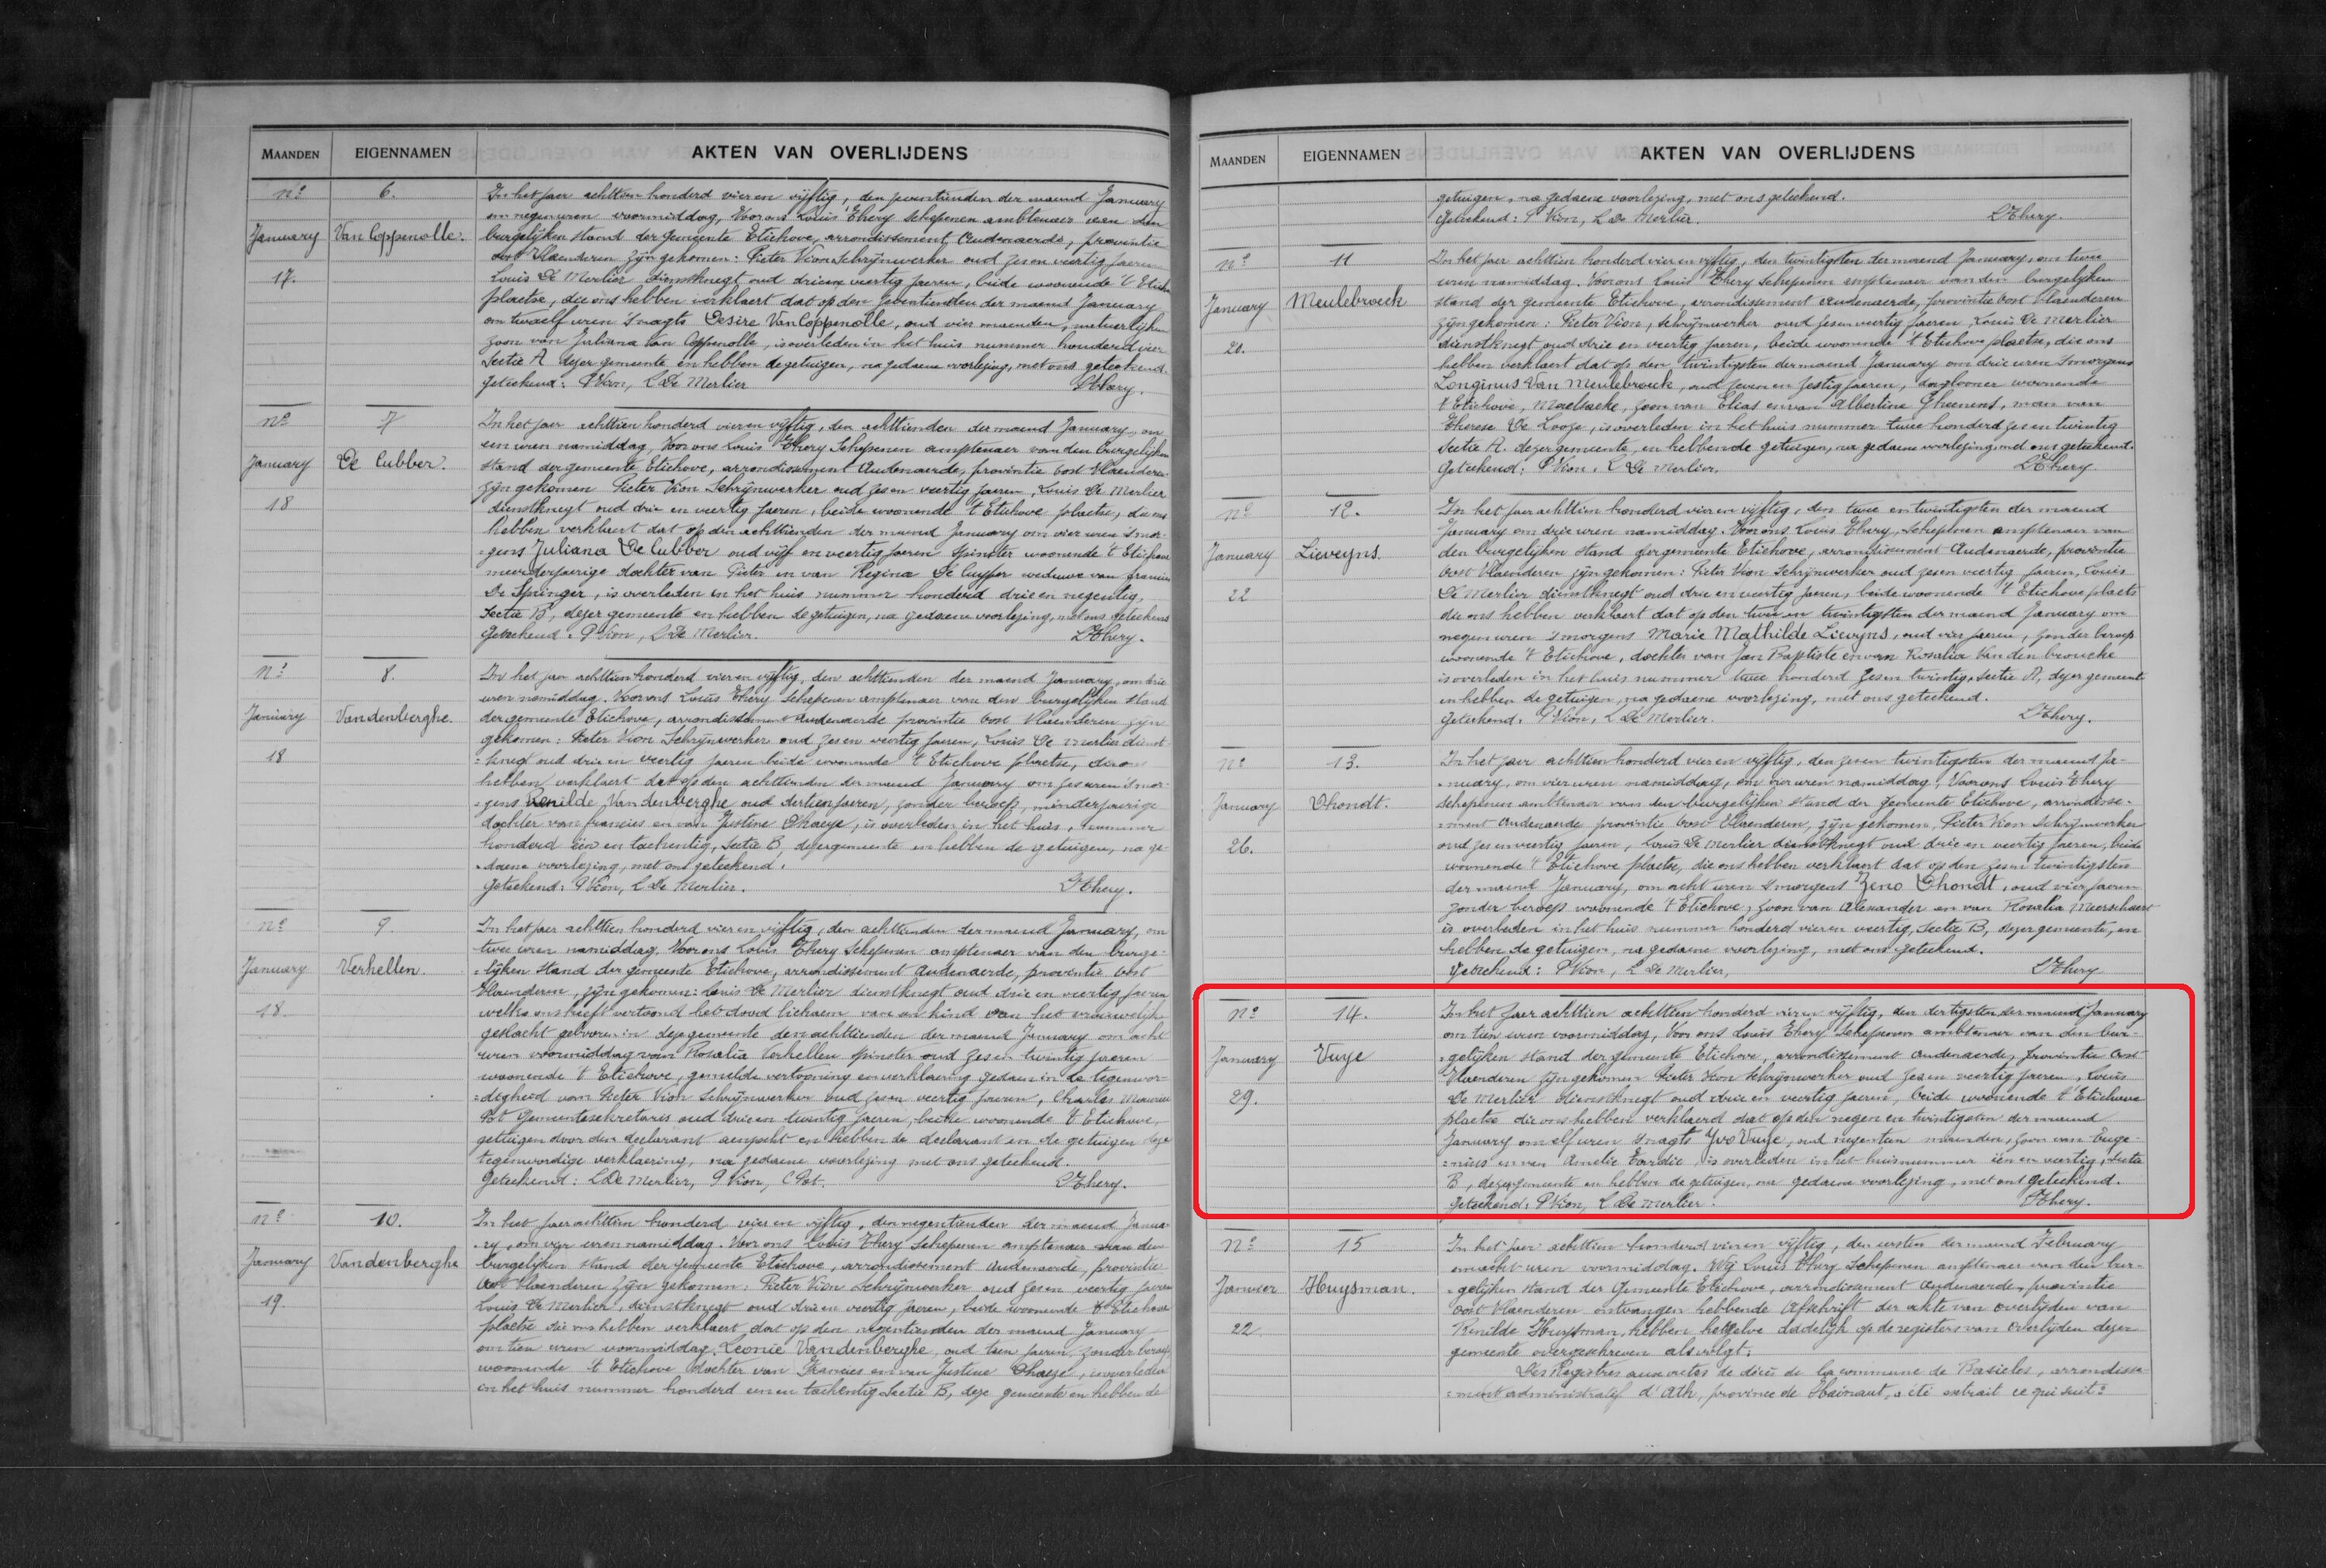 MAANDEN EIGENNAMEN AKTEN VAN OVERLIJDENS
nº 6. In het jaer achttien honderd vier en vyftig, den zeventienden der maend January
om negen uren voormiddag, Voor ons Louis Thery Schepenen ambtenaer van den
January Van Coppenolle. burgelyken stand der gemeente Etichove, arrondissement Audenaerde, provintie
Oost Vlaenderen zyn gekomen: Pieter Vion Schrynwerker oud zes en veertig jaeren
17. Louis De Merlier, dienstknegt oud drie en veertig jaeren, beide woonende 't Etich
plaetse, die ons hebben verklaert dat op den zeventiensten der maend January
om twaelf uren 's nagts Desire Van Coppenolle, oud vier maenden, natuerlyken
zoon van Juliana Van Coppenolle, is overleden in het huis nummer honderd vier
Sectie A dezer gemeente en hebben de getuigen, na gedaene voorlezing, met ons geteekend.
Geteekend: P Vion, L De Merlier LThery.
nº 7 In het jaer achttien honderd vier en vyftig, den achttienden der maend January, om
een uren namiddag, Voor ons Louis Thery Schepenen amptenaer van den burgelyken
January De Cubber. stand der gemeente Etichove, arrondissement Audenaerde, provintie Oost Vlaenderen
zyn gekomen Pieter Vion Schrynwerker oud zes en veertig jaeren, Louis De Merlier
18 dienstknegt oud drie en veertig jaeren, beide woonende 't Etichove plaetse, die ons
hebben verklaert dat op den achttienden der maend January om vier uren 's mor-
-gens Juliana De Cubber oud vyf en veertig jaeren Spinster woonende 't Etichove
meerderjaerige dochter van Pieter en van Regina De Cuyper weduwe van francies
De Springer, is overleden in het huis nummer honderd drie en negentig,
Sectie B, dezer gemeente en hebben de getuigen, na gedaene voorlezing, met ons geteekend
Geteekend: P Vion, L De Merlier. LThery.
nº 8. In het jaer achttien honderd vier en vyftig, den achttienden der maend January, om drie
uren namiddag. Voor ons Louis Thery Schepenen amptenaer van den burgelyken stand
January Vandenberghe. der gemeente Etichove, arrondissement Audenaerde provintie Oost Vlaenderen zyn
gekomen: Pieter Vion Schrynwerker oud zes en veertig jaeren, Louis De Merlier dienst-
18 -knegt oud drie en veertig jaeren beide woonende 't Etichove plaetse, die ons
hebben verklaert dat op den achttienden der maend January om zes uren 's mor-
-gens Renilde Vandenberghe oud dertien jaeren, zonder beroep, minderjaerige
dochter van francies en van Justine Dhaeze, is overleden in het huis, nummer
honderd een en tachentig, Sectie B, dezer gemeente en hebben de getuigen, na ge-
-daene voorlezing, met ons geteekend.
Geteekend: P Vion, L De Merlier. LThery.
nº 9. In het jaer achttien honderd vier en vyftig, den achttienden der maend January, om
twee uren namiddag. Voor ons Louis Thery Schepenen amptenaer van den burge-
January Verhellen. -lyken stand der gemeente Etichove, arrondissement Audenaerde, provintie Oost
Vlaenderen, zyn gekomen: Louis De Merlier dienstknegt oud drie en veertig jaeren
18. welke ons heeft vertoond het dood lichaem van een kind van het vrouwelyk
geslacht geboren in deze gemeente den achttienden der maend January om acht
uren voormiddag van Rosalia Verhellen spinster oud zes en twintig jaeren
woonende 't Etichove, gemelde vertooning en verklaering gedaen in de tegenwor-
-digheid van Pieter Vion Schrynwerker oud zes en veertig jaeren, Charles
Pot Gemeentesekretaris oud drie en twintig jaeren, beide woonende 't Etichove,
getuigen door den declarant aenzocht en hebben de declarant en de getuigen deze
tegenwordige verklaering, na gedaene voorlezing met ons geteekend.
Geteekend: L De Merlier, P Vion, C Pot. LThery.
nº 10. In het jaer achttien honderd vier en vyftig, den negentienden der maend Janua-
-ry, om vyr uren namiddag. Voor ons Louis Thery Schepenen amptenaer van den
January Vandenberghe burgelyken stand der gemeente Etichove, arrondissement Audenaerde, provintie
Oost Vlaenderen zyn gekomen: Pieter Vion Schrynwerker oud zes en veertig jaeren
19. Louis De Merlier, dienstknegt oud drie en veertig jaeren, beide woonende 't Etichove
plaetse die ons hebben verklaert dat op den negentiensden der maend January
om tien uren voormiddag, Leonie Vandenberghe, oud tien jaeren, zonder beroep
woonende 't Etichove dochter van Francies en van Justine Dhaeze, is overleden
in het huis nummer honderd een en tachentig Sectie B, deze gemeente en hebben de
MAANDEN EIGENNAMEN AKTEN VAN OVERLIJDENS
getuigen, na gedaene voorlezing, met ons geteekend.
Geteekend: P Vion, L De Merlier. LThery.
nº 11 In het jaer achttien honderd vier en vyftig, den twintigsten der maend January, om twee
uren namiddag. Voor ons Louis Thery Schepenen amptenaer van den burgelyken
January Meulebroeck stand der gemeente Etichove, arrondissement Audenaerde, provintie Oost Vlaenderen
zyn gekomen: Pieter Vion, Schrynwerker oud zes en veertig jaeren, Louis De Merlier
20. dienstknegt oud drie en veertig jaeren, beide woonende 't Etichove plaetse, die ons
hebben verklaert dat op den twintigsten der maend January om drie uren 's morgens
Longinus Van Meulebroeck, oud zeven en zestig jaeren, daglooner woonende
't Etichove, Maelzaeke, zoon van Elias en van Albertine Gheenens, man van
Therese De Looze, is overleden in het huis nummer twee honderd zes en twintig
Sectie A. dezer gemeente, en hebben de getuigen, na gedaene voorlezing, met ons geteekend.
Geteekend: P Vion, L De Merlier. LThery.
nº 12. In het jaer achttien honderd vier en vyftig, den twee en twintigsten der maend
January om drie uren namiddag. Voor ons Louis Thery, Schepenen amptenaer van
January Lieveyns. den burgelyken stand der gemeente Etichove, arrondissement Audenaerde, provintie
Oost Vlaenderen zyn gekomen: Pieter Vion Schrynwerker oud zes en veertig jaeren, Louis
22 De Merlier dienstknegt oud drie en veertig jaeren, beide woonende 't Etichove plaets
die ons hebben verklaert dat op den twee en twintigsten der maend January om
negen uren 's morgens Marie Mathilde Lieveyns, oud vier jaeren, zonder beroep
woonende 't Etichove, dochter van Jan Baptiste en van Rosalia Van den broucke
is overleden in het huis nummer twee honderd zes en twintig, Sectie A, dezer gemeente
en hebben de getuigen, na gedaene voorlezing, met ons geteekend.
Geteekend. P Vion, L De Merlier. LThery.
nº 13. In het jaer achttien honderd vier en vyftig, den zes en twintigsten der maend Ja-
-nuary, om vier uren namiddag, om vier uren namiddag, Voor ons Louis Thery
January Dhondt. Schepenen ambtenaer van den burgelyken stand der gemeente Etichove, arrondisse-
-ment Audenaerde provintie Oost Vlaenderen, zyn gekomen, Pieter Vion Schrynwerker
26. oud zes en veertig jaeren, Louis De Merlier dienstknegt oud drie en veertig jaeren, beide
woonende 't Etichove plaetse, die ons hebben verklaert dat op den zes en twintigsten
der maend January, om acht uren 's morgens Zeno Dhondt, oud vier jaeren
zonder beroep woonende 't Etichove, zoon van Alexander en van Rosalia Meerschaert
is overleden in het huis nummer honderd vier en veertig, Sectie B, dezer gemeente, en
hebben de getuigen, na gedaene voorlezing, met ons geteekend.
Geteekend: P Vion, L De Merlier, LThery
nº 14. In het jaer achttien achttien honderd vier en vyftig, den dertigsten der maend January
om tien uren voormiddag, Voor ons Louis Thery Schepenen ambtenaer van den bur-
January Vuye -gelyken stand der gemeente Etichove, arrondissement Audenaerde, provintie Oost
Vlaenderen zyn gekomen Pieter Vion Schrynwerker oud zes en veertig jaeren, Louis
29. De Merlier dienstknegt oud drie en veertig jaeren, beide woonende 't Etichove
plaetse die ons hebben verklaerd dat op den negen en twintigsten der maend
January om elf uren 's nagts Yvo Vuye, oud negentien maenden, zoon van Euge-
-nius en van Amelie Eerdie, is overleden in het huis nummer een en veertig, Sectie
B, dezer gemeente en hebben de getuigen, na gedaene voorlezing, met ons geteekend.
Geteekend: P Vion, L De Merlier. LThery.
nº 15 In het jaer achttien honderd vier en vyftig, den eersten der maend February
om acht uren voormiddag. Wy Louis Thery Schepenen amptenaer van den bur-
Janvier Huysman. -gelyken stand der Gemeente Etichove, arrondissement Audenaerde, provintie
Oost Vlaenderen ontvangen hebbende Afschrift der akte van overlyden van
22. Renilde Huysman, hebben hetzelve dadelyk op de registers van Overlyden dezer
gemeente overgeschreven als volgt:
Des Registres aux actes de décès de la commune de Basècles, arrondisse-
-ment administratif d'Ath, province de Hainaut, a été extrait ce qui suit: